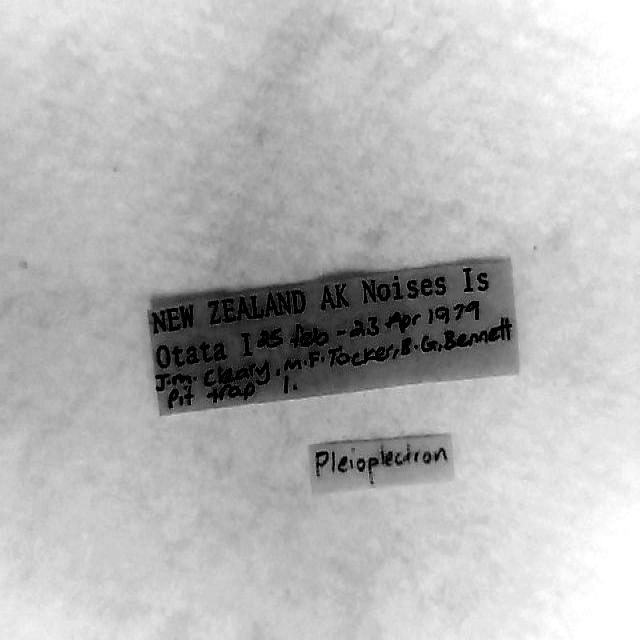 NEW ZEALAND AK Noises Is
Otata I 25 Feb - 23 Apr 1979
J.M. Cleary, M.F. Tocker, B.G. Bennett
Pit trap 1.
Pleioplectron